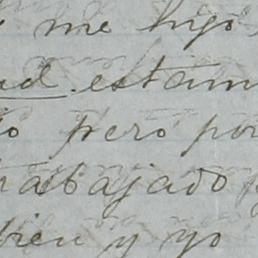 y me hijo
ud. estam
io pero por
trabajado
bien y yo